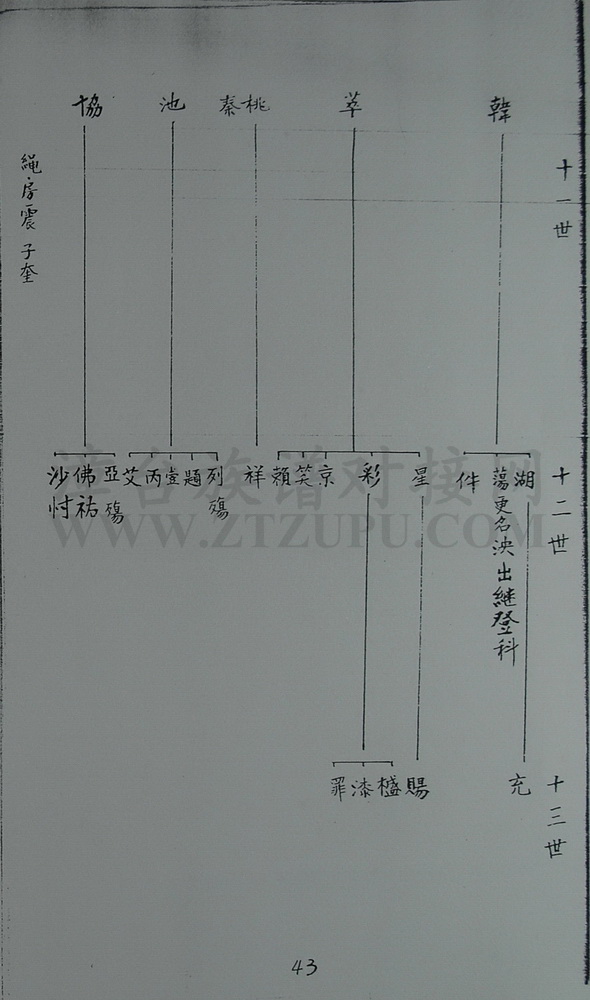 十一世
韓
萃
桃秦
池
協
繩房震子奎
十二世
湖
蕩更名泱出繼登科
件
星
彩
京
笑
賴
祥
列殤
題
壹
丙
艾
亞殤
佛祐
沙忖
十三世
充
賜
漆
罪
43
WWW.ZTZUPU.COM